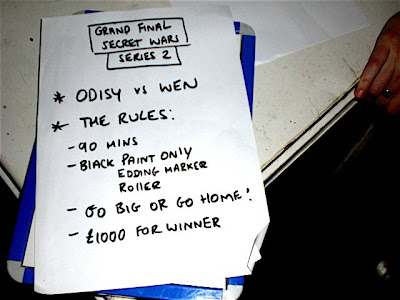 GRAND FINAL
SECRET WARS
SERIES 2
* ODISY vs WEN
* THE RULES:
- 90 MINS
- BLACK PAINT ONLY
EDDING MARKER
ROLLER
- GO BIG OR GO HOME!
- £1000 FOR WINNER